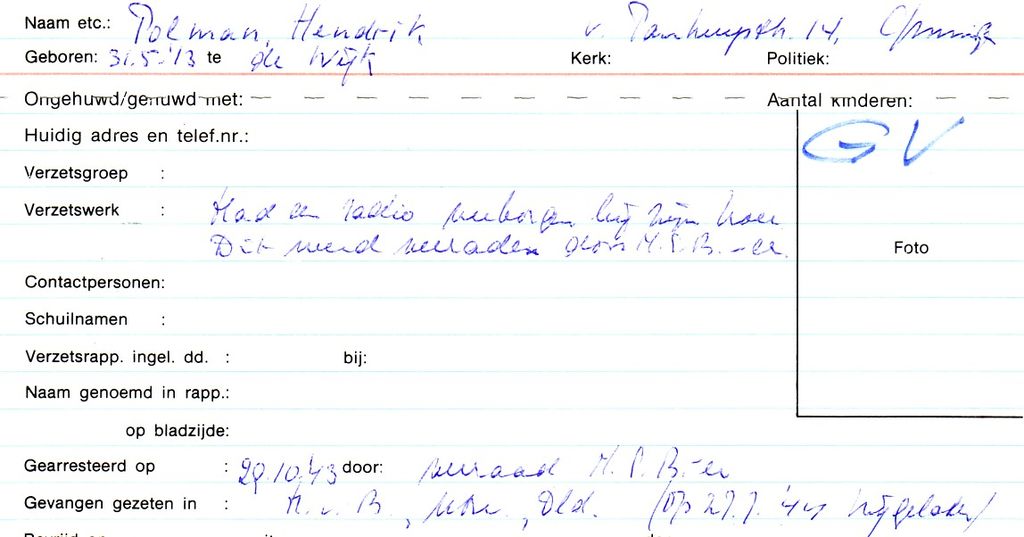 Naam etc.: Polman, Hendrik v. Panhuysstr. 14, Groningen
Geboren: 31.5.'13 te de Wijk Kerk: Politiek:
Ongehuwd/gehuwd met: Aantal kinderen:
Huidig adres en telef.nr.: G V
Verzetsgroep :
Verzetswerk : Had een radio verborgen bij zijn
Dit werd verraden door N.S.B.-er.
Foto
Contactpersonen:
Schuilnamen :
Verzetsrapp. ingel. dd. : bij:
Naam genoemd in rapp.:
op bladzijde:
Gearresteerd op : 29.10.'43 door: verraad N.S.B.-er
Gevangen gezeten in : H. v. B, , Dld. (op 27.7.'44